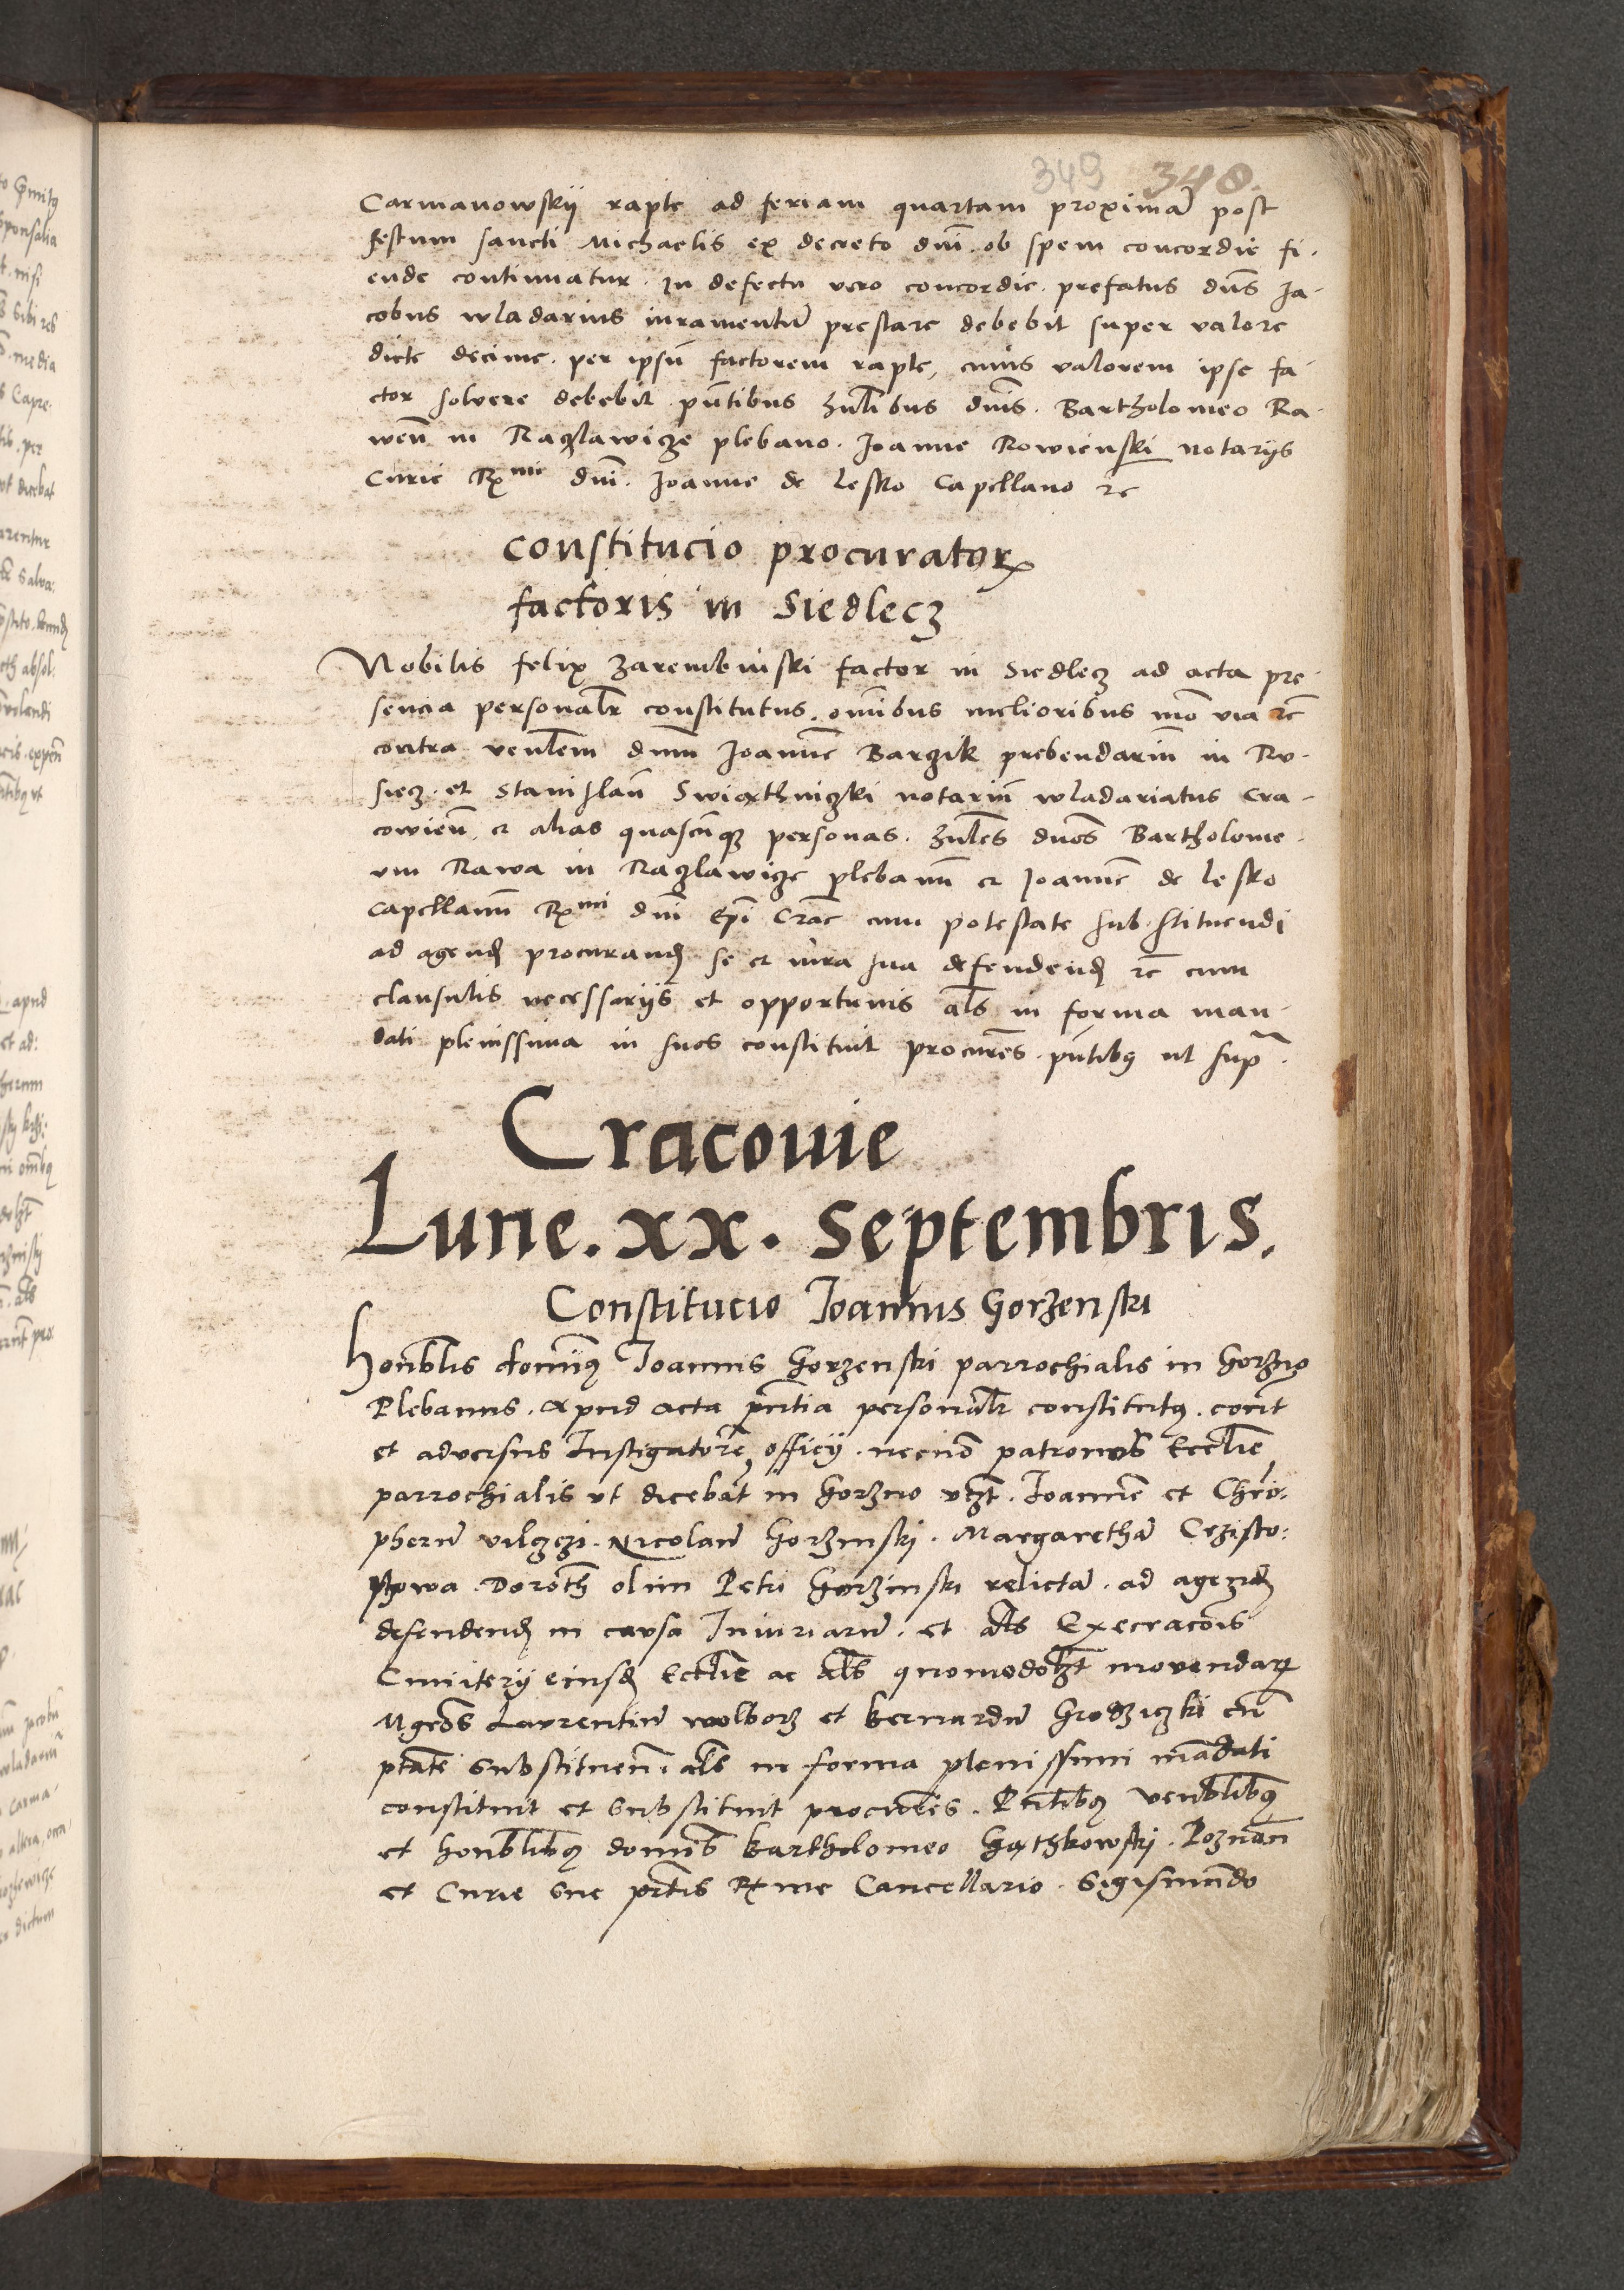 349 348.
Carmanowskij rapte ad feriam quartam proximã post
festum sancti Michaelis ex decreto dnĩ. ob spem concordie fi-
ende continuatur. In defectu vero concordie. prefatus dñs Ja-
cobus wladarius iuramentũ prestare debebit super valore
dicte decime. per ipsũ factorem rapte, cuius valorem ipse fa-
ctor solvere debebit pñtibus hũlibus dnĩs. Bartholomeo Ra-
weñ in Raczlawicze plebano. Joanne Rowienski notarijs
Curie Rmi dnĩ. Joanne de Lesko Capellano rc
Constitucio procurator
factoris in Siedlecz
Nobilis felix Zarembinski factor in Siedlecz ad acta pre-
sencia personalr constitutus. omĩbus melioribus mõ via rc
contra venlem dnm Joannẽ Barzik prebendariũ in Ru-
siecz. et Stanislaũ Swiąthniczki notariũ wladariatus Cra-
cowieñ. et alias quascũq personas. hules dnos Bartholome-
um Rawa in Raczlawicze plebanũ et Joannẽ de Lesko
Capellanũ Rmi dnĩ Epĩ Crac cum potestate sub stituendi
ad agend procurand se et iura sua defendend rc cum
clausulis necessarijs et opportunis als in forma man-
dati plenissima in suos constituit procures. pñtibq ut sup.
Cracouie
Lune. xx. Septembris.
Constitucio Joannis Gorzenski
Honblis domiq Joannis Gorzenski parrochialis in Gorzno
Plebanus. apud acta pñtia personalr constitutq. cont
et adversus Instigatorẽ officij. necnõ patronos Ecclie
parrochialis ut dicebat in Gorzno vcz. Joannẽ et Chrõ:
pherũ vilczczi. Nicolaũ Gorzinski. Margarethã Crzisto:
phowa. Doroth olim Petri Gorzinski relictã. ad agend
defendend in causa Iniuriarũ. et als Execracõis
Cimiterij eiusd Ecclie ac als quomodolzt movendar
Mgros Laurentiũ wolborz et Bernardũ Grodziczki cũ
ptate substituen. als in forma plenissimi mãdati
constituit et substituit procures. Pñtibq venblibq
et honblibq domĩs Bartholomeo Gąthkowski. Poznañ
et Curie sue ptis Rme Cancellario. Sigismũdo